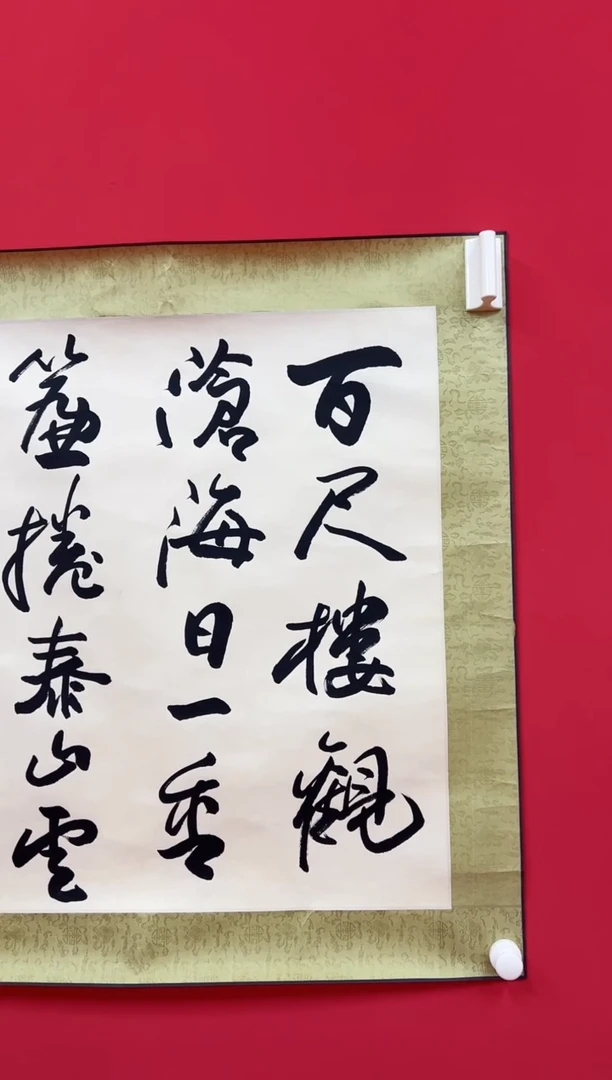 百尺樓觀
滄海日一香
簾捲泰山雲